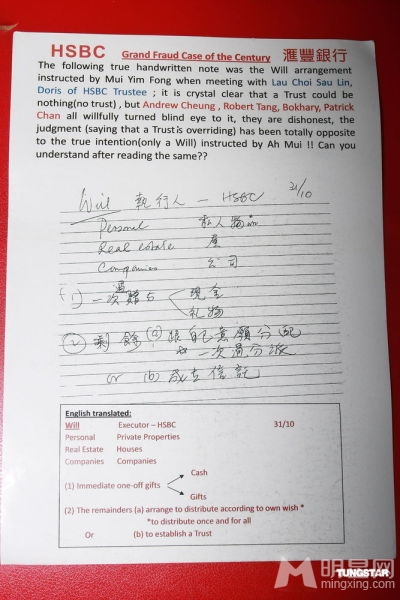 HSBC Grand Fraud Case of the Century 滙豐銀行
The following true handwritten note was the Will arrangement
instructed by Mui Yim Fong when meeting with Lau Choi Sau Lin,
Doris of HSBC Trustee ; it is crystal clear that a Trust could be
nothing(no trust) , but Andrew Cheung , Robert Tang, Bokhary, Patrick
Chan all willfully turned blind eye to it, they are dishonest, the
judgment (saying that a Trust is overriding) has been totally opposite
to the true intention(only a Will) instructed by Ah Mui !! Can you
understand after reading the same??
Will 執行人 — HSBC 31/10
Personal 私人物
Real estate 屋
Companies 公司
(1) 一次過贈与 現金
礼物
(2) 剩餘 (a) 跟自己意願分配
一次過分派
or (b) 成立信託
English translated:
Will Executor – HSBC 31/10
Personal Private Properties
Real Estate Houses
Companies Companies
Cash
(1) Immediate one-off gifts
Gifts
(2) The remainders (a) arrange to distribute according to own wish *
*to distribute once and for all
Or (b) to establish a Trust
明星网
TUNGSTAR
mingxing.com